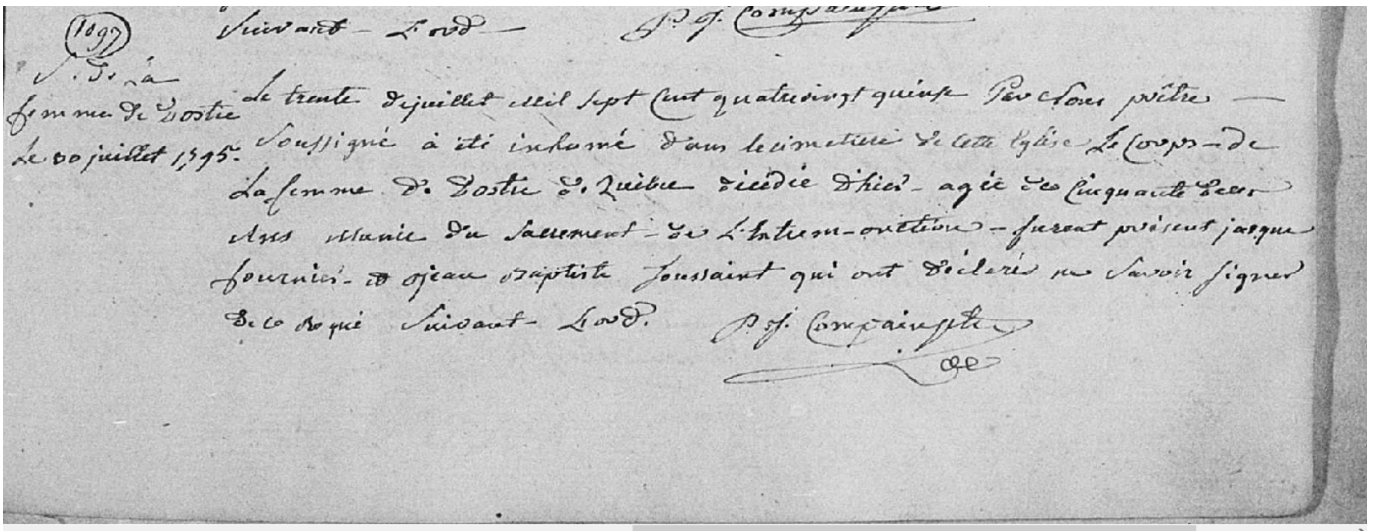 1097
Suivant L'ord P. J. Compain ptre
S. De La
femme de Dostie
Le 30 juillet 1795.
Le trente de juillet mil sept Cent quatrevingt quinze Par Nous prêtre
Soussigné à été inhumé dans le cimetiere de cette Eglise Le Corps de
La femme De Dostie décédée d'hier agée de Cinquante deux
Ans Munie Du Sacrement de L'Extrem-onction furent présent jacque
fournier et jean Baptiste Toussaint qui ont déclaré ne Savoir Signer
de ce Suivant L'ord. P. J. Compain ptre